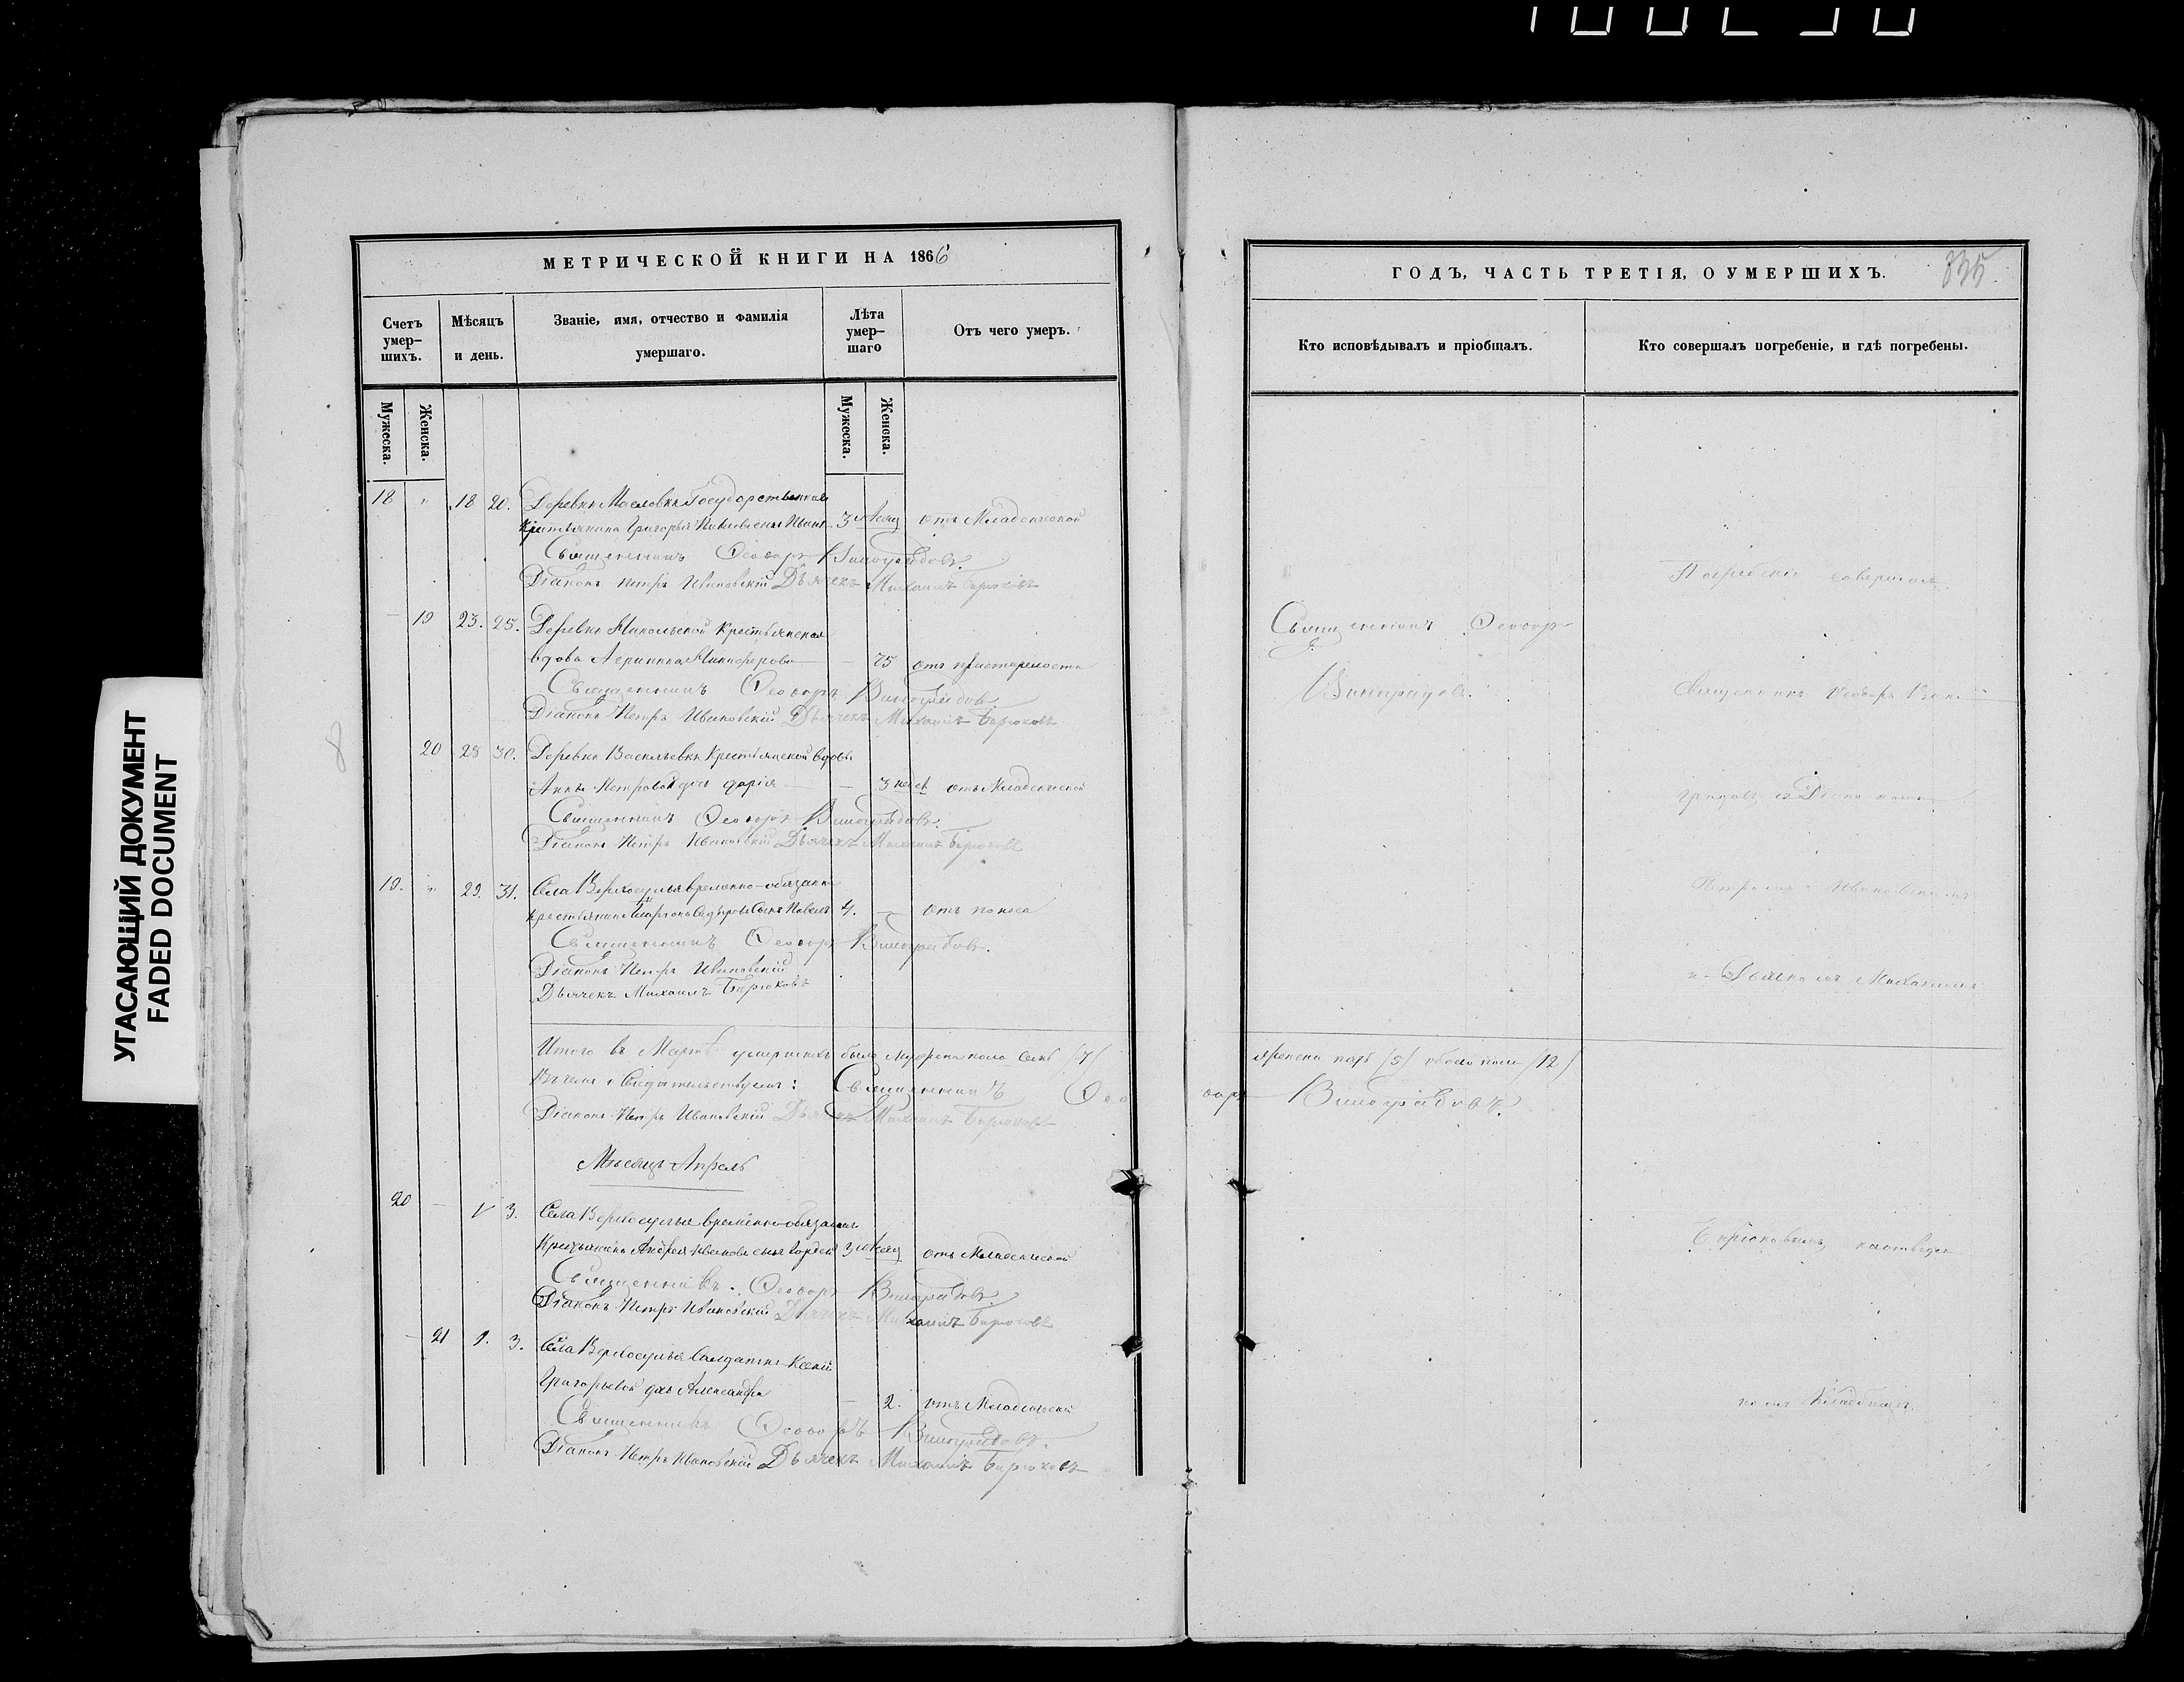 УГАСАЮЩИЙ ДОКУМЕНТ
FADED DOCUMENT
МЕТРИЧЕСКОЙ КНИГИ НА 1866
Счетъ умер-шихъ.
Мѣсяцъ и день.
Званіе, имя, отчество и фамилія умершаго.
Лѣта умер-шаго
Отъ чего умеръ.
Мужеска.
Женска.
Мужеска.
Женска.
18 " 18 20. Деревни Масловки Государственнаго
Крестьянина Григорья сынъ Иванъ 3 месяц отъ Младенческой
Священникъ Ѳеодоръ Виноградовъ.
Діаконъ Петръ Ивановскій Дьячекъ Михаилъ Бирюковъ
- 19 23. 25. Деревни Никольской Крестьянская
вдова Агрипина Никифорова - 75 отъ престарелости
Священникъ Ѳеодоръ Виноградовъ.
Діаконъ Петръ Ивановскій Дьячекъ Михаилъ Бирюковъ
20 28 30. Деревни Васильевки Крестьянской вдовы
Анны Петровой дочь Дарія - 3 отъ Младенческой
Священникъ Ѳеодоръ Виноградовъ.
Діаконъ Петръ Ивановскій Дьячекъ Михаилъ Бирюковъ
19. " 29. 31. Села Верхосулья временно-обязанн
крестьянина сынъ Павелъ 4. - отъ поноса
Священникъ Ѳеодоръ Виноградовъ.
Діаконъ Петръ Ивановскій
Дьячекъ Михаилъ Бирюковъ
Итого въ Мартѣ умершихъ было мужеска пола семь /7/
Въ чемъ и Свидетельствуемъ: Священникъ Ѳео
Діаконъ Петръ Ивановскій Дьячекъ Михаилъ Бирюковъ
Мѣсяцъ Апрель
20 - 1 3. Села Верхосулья временно-обязанн
Крестьянина Андрея Иванова сынъ Гордей 3 месяц отъ Младенческой
Священникъ Ѳеодоръ Виноградовъ.
Діаконъ Петръ Ивановскій Дьячекъ Михаилъ Бирюковъ
- 21 1. 3. Села Верхосулья Солдатки Ксеніи
Григорьевой дочь Александра - 2. отъ Младенческой
Священникъ Ѳеодоръ Виноградовъ.
Діаконъ Петръ Ивановскій Дьячекъ Михаилъ Бирюковъ
8
ГОДЪ, ЧАСТЬ ТРЕТІЯ, О УМЕРШИХЪ.
835.
Кто исповѣдывалъ и пріобщалъ.
Кто совершалъ погребеніе, и гдѣ погребены.
Священникъ Ѳеодоръ
Виноградовъ.
женска пять /5/ обоего пола /12/
оръ Виноградовъ.
Погребеніе совершал
Священникъ Ѳеодоръ Вино
градовъ съ Діакономъ
Петромъ Ивановскимъ
и Дьячкомъ Михаиломъ
Бирюковымъ, на отведен
номъ Кладбище.